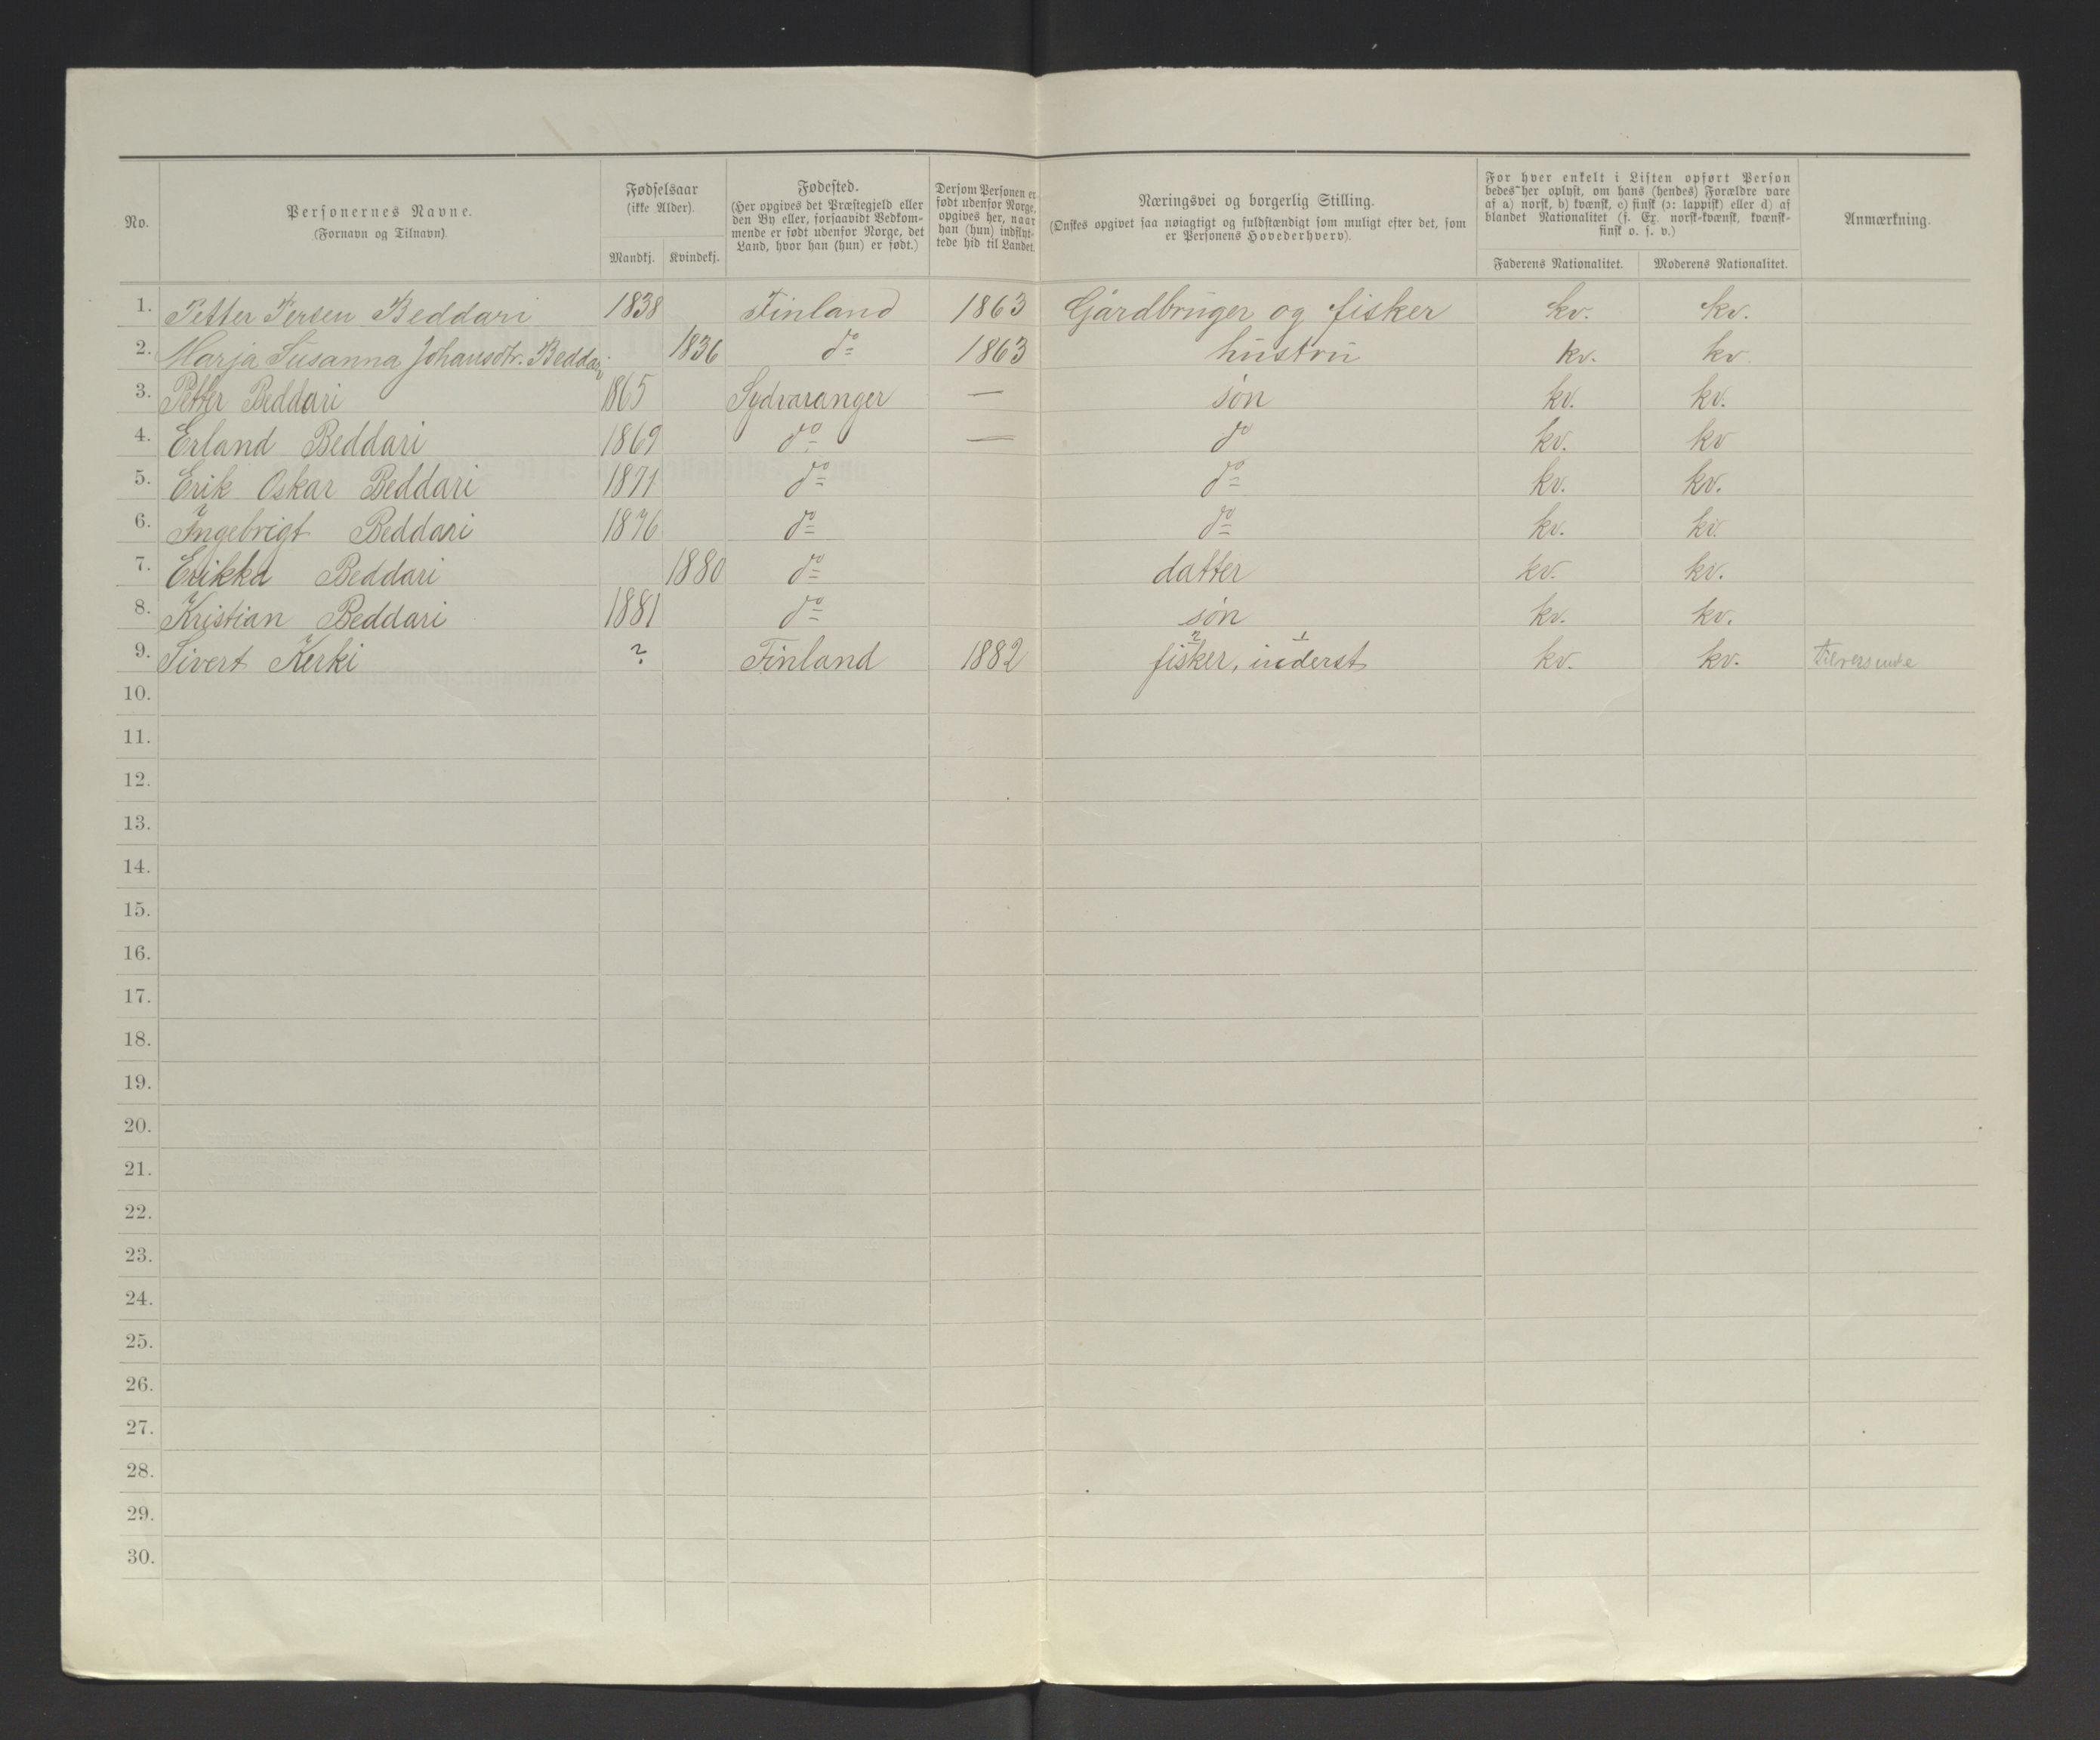 No.
Personernes Navne.
(Fornavn og Tilnavn).
Fødselsaar
(ikke Alder).
Mandkj. Kvindekj.
Fødested.
(Her opgives det Præstegjeld eller
den By eller, forsaavidt Vedkom-
mende er født udenfor Norge, det
Land, hvor han (hun) er født.)
Dersom Personen er
født udenfor Norge,
opgives her, naar
han (hun) indflyt-
tede hid til Landet.
Næringsvei og borgerlig Stilling.
(Ønskes opgivet saa nøiagtigt og fuldstændigt som muligt efter det, som
er Personens Hovederhverv).
For hver enkelt i Listen opført Person
bedes her oplyst, om hans (hendes) Forældre vare
af a) norsk, b) kvænsk, c) finsk (ɔ: lappisk) eller d) af
blandet Nationalitet (f. Ex. norsk-kvænsk, kvænsk-
finsk o. s. v.)
Faderens Nationalitet. Moderens Nationalitet.
Anmærkning.
1. Petter Persen Beddari 1838 Finland 1863 Gårdbruger og fisker kv. kv.
2. Marja Susanna Johansdtr. Beddari 1836 do 1863 hustru kv. kv
3. Petter Beddari 1865 Sydvaranger — søn kv. kv.
4. Erland Beddari 1869 do — do kv. kv
5. Erik Oskar Beddari 1871 do do kv. kv.
6. Ingebrigt Beddari 1876 do do kv. kv.
7. Erikka Beddari 1880 do datter kv. kv.
8. Kristian Beddari 1881 do søn kv. kv.
9. Sivert Kerki ? Finland 1882 fisker, inderst kv. kv.
2 1
10.
11.
12.
13.
14.
15.
16.
17.
18.
19.
20.
21.
22.
23.
24.
25.
26.
27.
28.
29.
30.